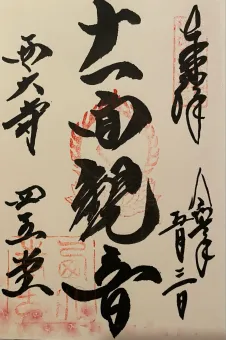 奉拝
五月三日
十一面観音
西大寺
四王堂